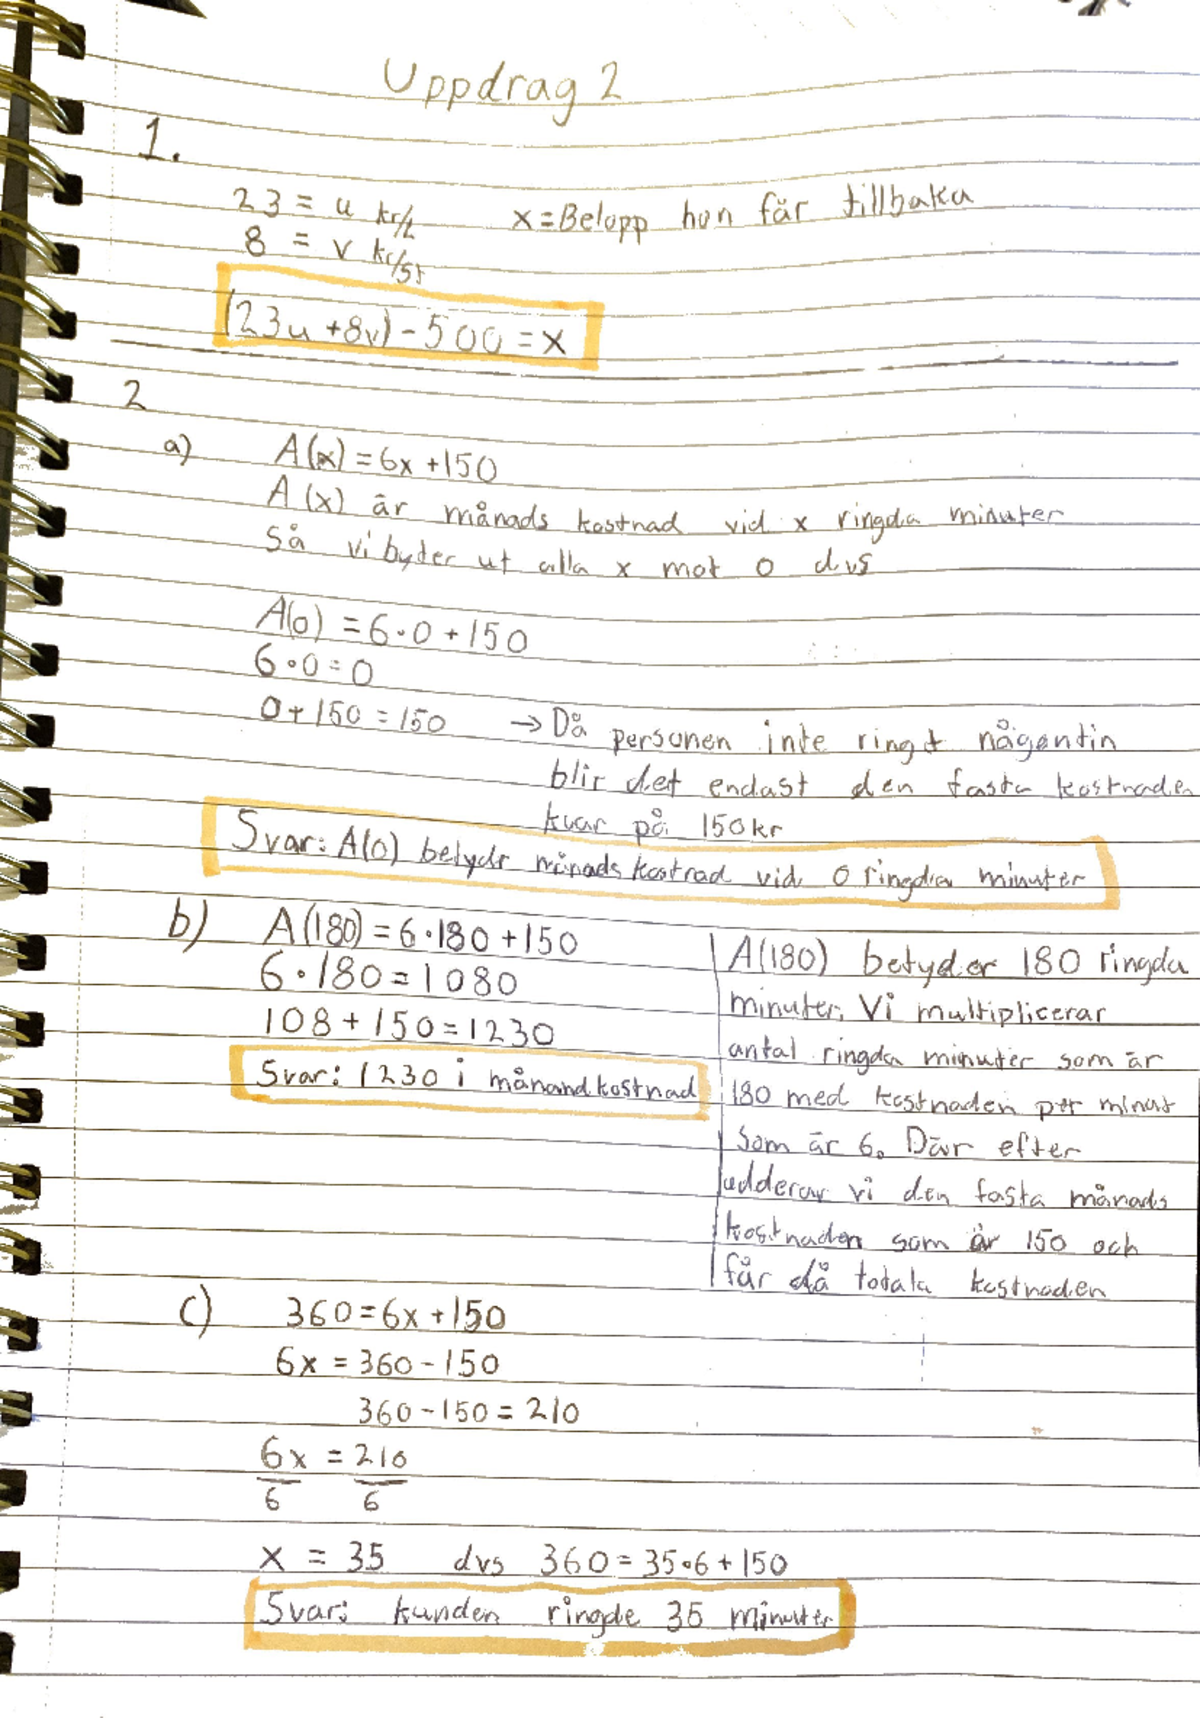 Uppdrag 2
1.
23 = u kr/L x = Belopp hon får tillbaka
8 = v kr/st
(23u + 8v) - 500 = x
2
a) A(x) = 6x + 150
A(x) är månads kostnad vid x ringda minuter
Så vi byter ut alla x mot 0 dvs
A(0) = 6 • 0 + 150
6 • 0 = 0
0 + 150 = 150 → Då personen inte ringt någontin
blir det endast den fasta kostnaden
kvar på 150kr
Svar: A(0) betydr månads kostnad vid 0 ringda minuter
b) A(180) = 6 • 180 + 150
6 • 180 = 1080
108 + 150 = 1230
Svar: 1230 i månandkostnad
A(180) betyder 180 ringda
minuter. Vi multiplicerar
antal ringda minuter som är
180 med kostnaden per minut
som är 6. Där efter
adderar vi den fasta månads
kostnaden som är 150 och
får då totala kostnaden
c) 360 = 6x + 150
6x = 360 - 150
360 - 150 = 210
6x = 210
6 6
x = 35 dvs 360 = 35 • 6 + 150
Svar: kunden ringde 35 minuter